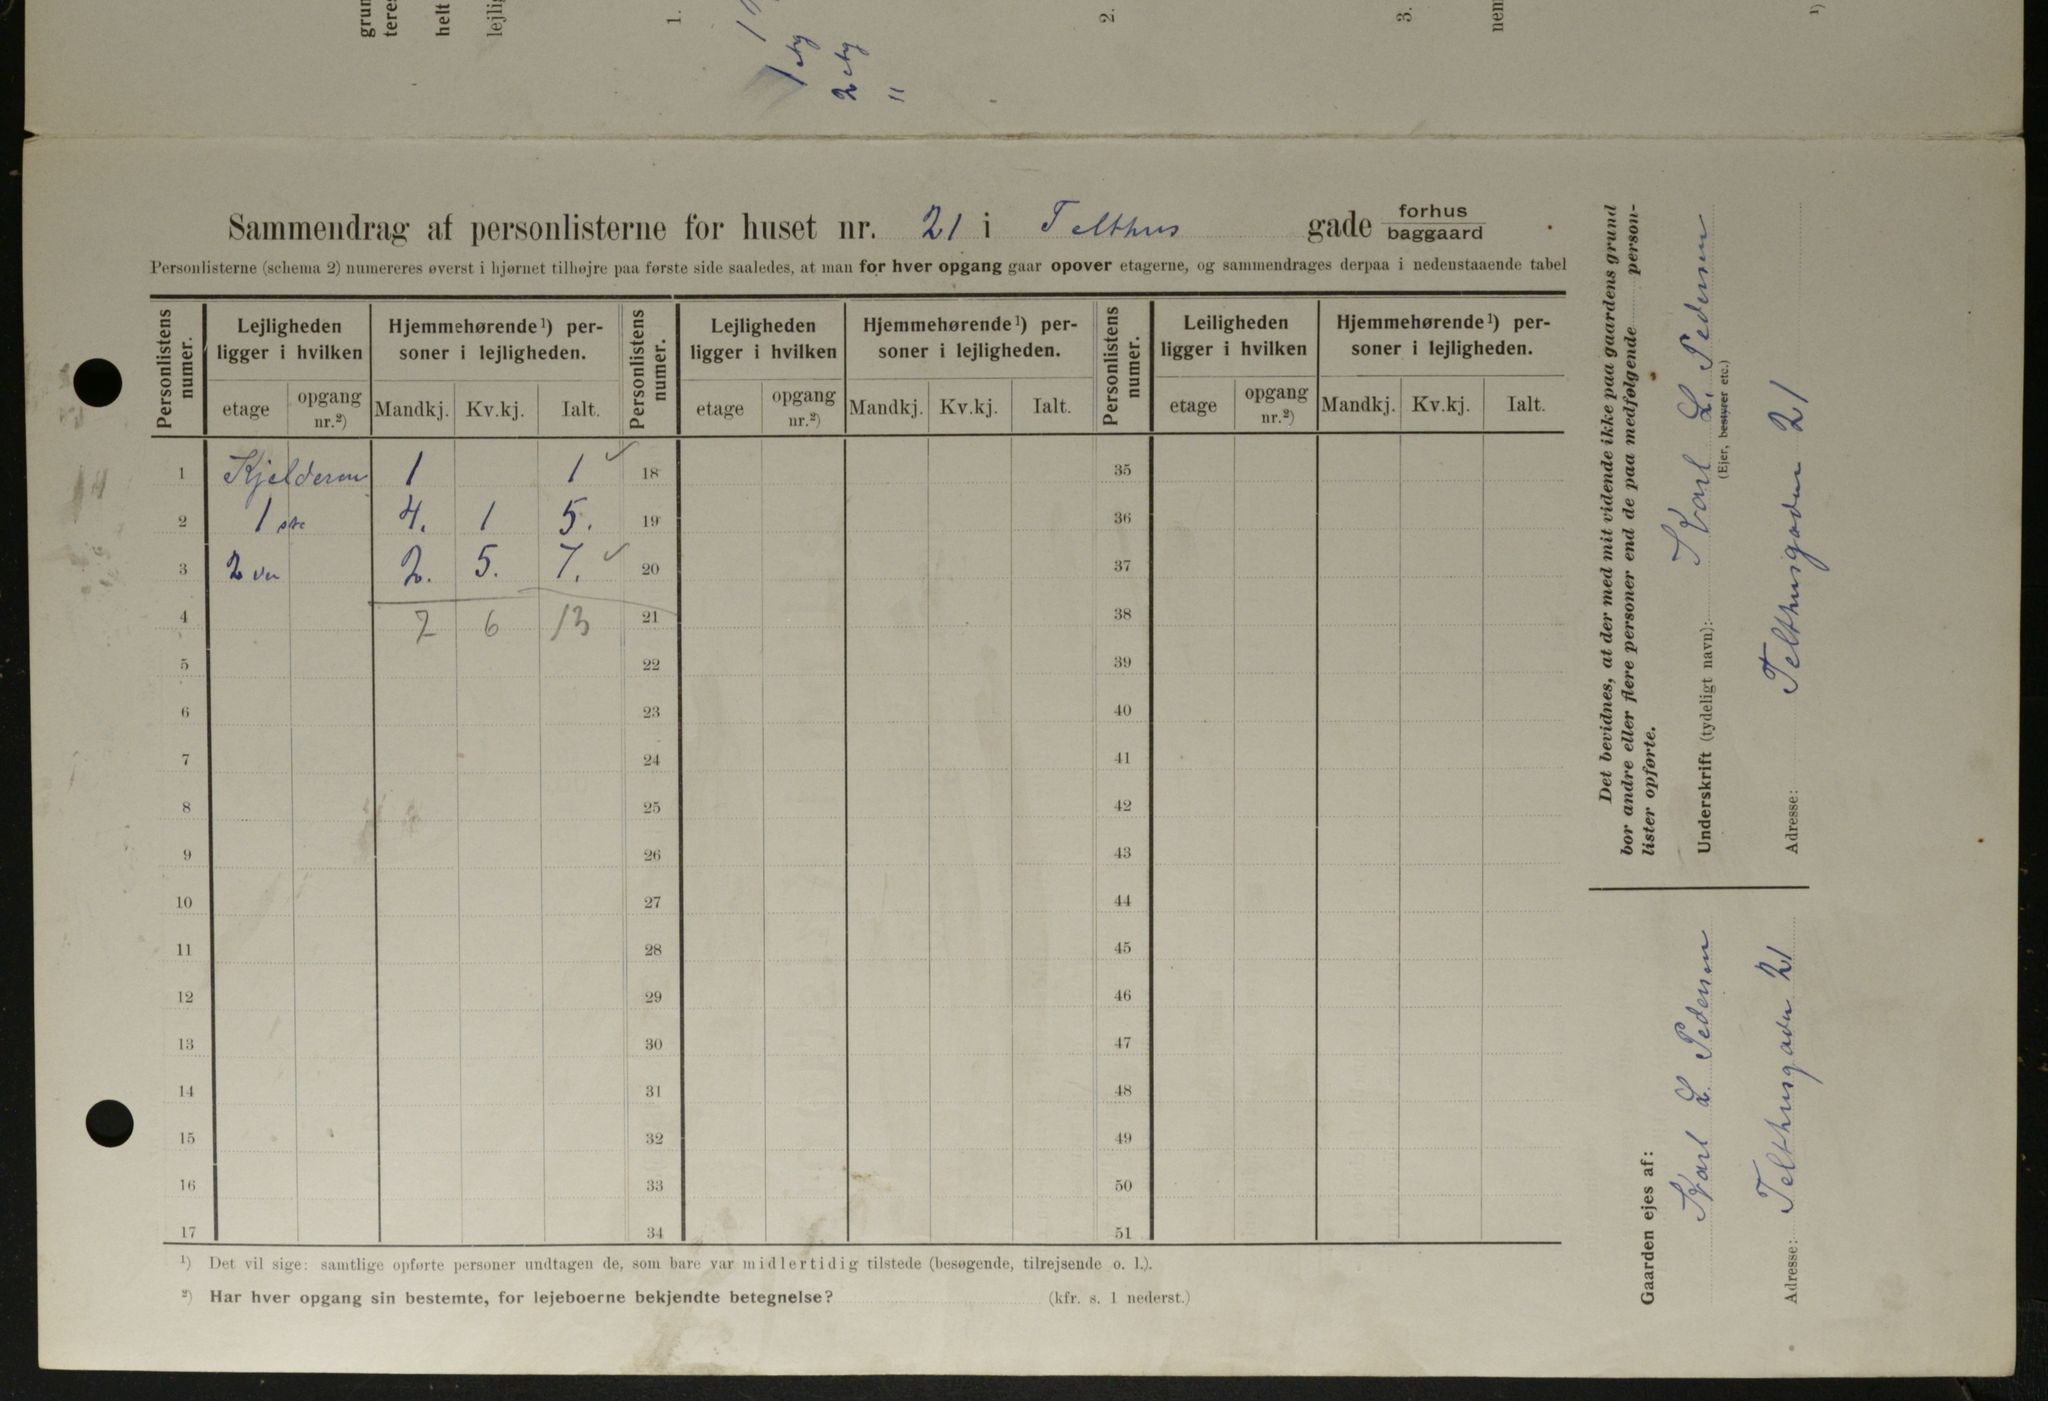 grun
teres
helt
lejlig
1.
2.
3.
nem
¹)
1 etg
2 etg
"
Sammendrag af personlisterne for huset nr. 21 i Telthus gade forhus baggaard
Personlisterne (schema 2) numereres øverst i hjørnet tilhøjre paa første side saaledes, at man for hver opgang gaar opover etagerne, og sammendrages derpaa i nedenstaaende tabel
Personlistens numer.
Lejligheden ligger i hvilken
Hjemmehørende¹) personer i lejligheden.
etage
opgang nr.²)
Mandkj.
Kv.kj.
Ialt.
Personlistens numer.
Lejligheden ligger i hvilken
Hjemmehørende¹) personer i lejligheden.
etage
opgang nr.²)
Mandkj.
Kv.kj.
Ialt.
Personlistens numer.
Leiligheden ligger i hvilken
Hjemmehørende¹) personer i lejligheden.
etage
opgang nr.²)
Mandkj.
Kv.kj.
Ialt.
1 Kjelderen 1 1 ✓ 18 35
2 1ste 4. 1 5. 19 36
3 2den 2. 5. 7. ✓ 20 37
4 7 6 13 21 38
5 22 39
6 23 40
7 24 41
8 25 42
9 26 43
10 27 44
11 28 45
12 29 46
13 30 47
14 31 48
15 32 49
16 33 50
17 34 51
¹) Det vil sige: samtlige opførte personer undtagen de, som bare var midlertidig tilstede (besøgende, tilrejsende o. l.).
²) Har hver opgang sin bestemte, for lejeboerne bekjendte betegnelse? (kfr. s. 1 nederst.)
Det bevidnes, at der med mit vidende ikke paa gaardens grund
bor andre eller flere personer end de paa medfølgende person-
lister opførte.
Underskrift (tydeligt navn): Karl L. Pedersen
(Ejer, bestyrer etc.)
Adresse: Telthusgaden 21
Gaarden ejes af:
Karl L Pedersen
Adresse: Telthusgaden 21